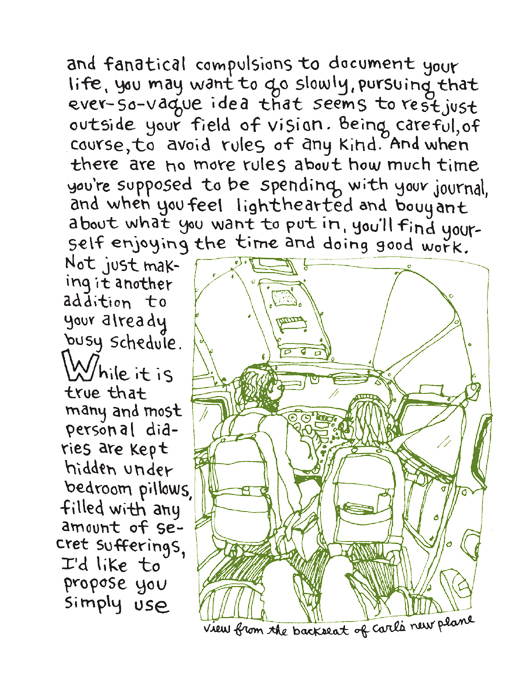 and fanatical compulsions to document your
life, you may want to go slowly, pursuing that
ever-so-vague idea that seems to rest just
outside your field of vision. Being careful, of
course, to avoid rules of any kind. And when
there are no more rules about how much time
you're supposed to be spending with your journal,
and when you feel lighthearted and bouyant
about what you want to put in, you'll find your-
self enjoying the time and doing good work.
Not just mak-
ing it another
addition to
your already
busy schedule.
While it is
true that
many and most
personal dia-
ries are kept
hidden under
bedroom pillows,
filled with any
amount of se-
cret sufferings,
I'd like to
propose you
simply use
view from the backseat of Carl's new plane